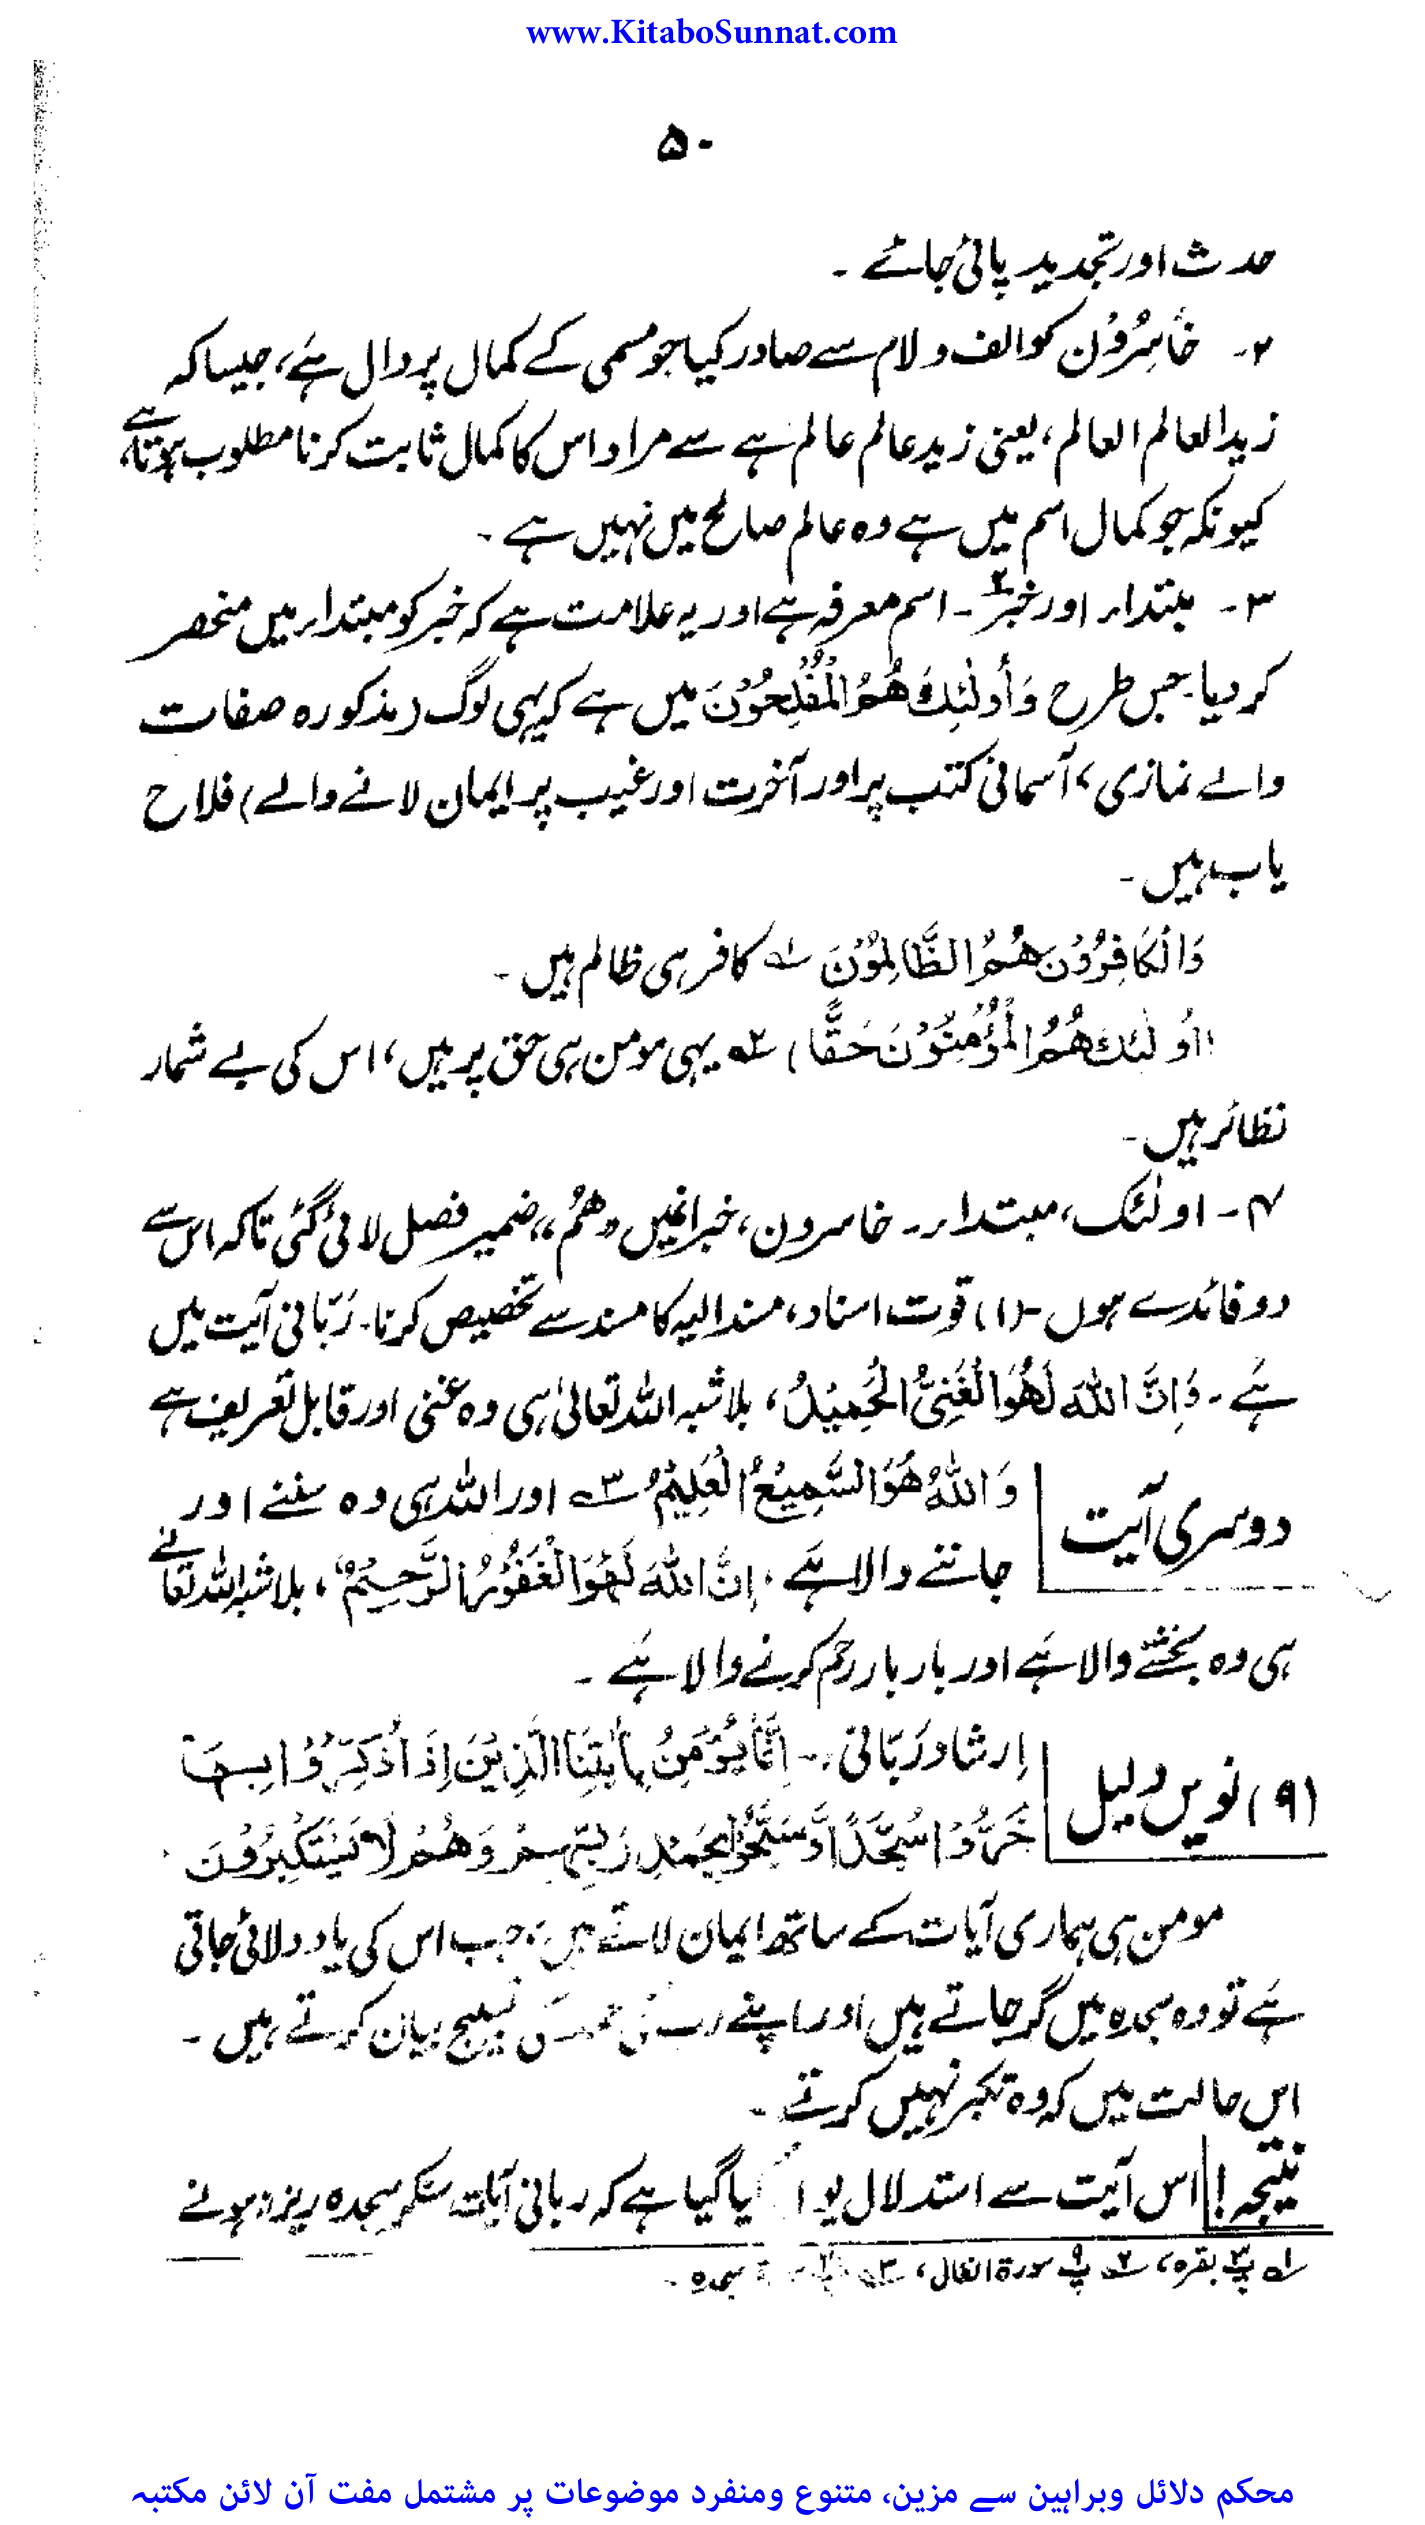 www.KitaboSunnat.com
۵۰
حدث اور تجدید پائی جائے ۔
۲۔ خَاسِرُوْن کو الف و لام سے صادر کیا جو مسمی کے کمال پر دال ہے، جیسا کہ
زید العالم العالم، یعنی زید عالم عالم ہے سے مراد اس کا کمال ثابت کرنا مطلوب ہوتا ہے،
کیونکہ جو کمال اسم میں ہے وہ عالم صالح میں نہیں ہے ۔
۳۔ مبتداء اور خبر ۲ ۔ اسم معرفہ ہے اور یہ علامت ہے کہ خبر کو مبتداء میں منحصر
کر دیا جس طرح وَأُولٰئِكَ هُمُ الْمُفْلِحُوْنَ میں ہے کہ یہی لوگ (مذکورہ صفات
والے نمازی، آسمانی کتب پر اور آخرت اور غیب پر ایمان لانے والے) فلاح
یاب ہیں ۔
وَالْكَافِرُوْنَ هُمُ الظَّالِمُوْنَ ؎۱ کافر ہی ظالم ہیں ۔
(اُولٰئِكَ هُمُ الْمُؤْمِنُوْنَ حَقًّا) ؎۲ یہی مومن ہی حق پر ہیں، اس کی بے شمار
نظائر ہیں ۔
۴۔ اولٰئک، مبتداء۔ خاسرون، خبر انہیں «ھُمْ» ضمیر فصل لائی گئی تاکہ اس سے
دو فائدے ہوں ۔(۱) قوت اسناد، مسند الیہ کا مسند سے تخصیص کرنا۔ رَبّانی آیت میں
ہے ۔ وَاِنَّ اللّٰهَ لَهُوَ الْغَنِيُّ الْحَمِيْدُ، بلاشبہ اللہ تعالیٰ ہی وہ غنی اور قابل تعریف ہے
دوسری آیت
وَاللّٰهُ هُوَ السَّمِيْعُ الْعَلِيْمُ ؎۳ اور اللہ ہی وہ سننے اور
جاننے والا ہے ، اِنَّ اللّٰهَ لَهُوَ الْغَفُوْرُ الرَّحِيْمُ، بلاشبہ اللہ تعالےٰ
ہی وہ بخشنے والا ہے اور بار بار رحم کرنے والا ہے ۔
(۹) نویں دلیل
اِرشاد رَبّانی ۔ اِنَّمَا يُؤْمِنُ بِاٰيٰتِنَا الَّذِيْنَ اِذَا ذُكِّرُوْا بِهَا
خَرُّوْا سُجَّدًا وَّسَبَّحُوْا بِحَمْدِ رَبِّهِمْ وَهُمْ لَا يَسْتَكْبِرُوْنَ
مومن ہی ہماری آیات کے ساتھ ایمان لاتے ہیں، جب اس کی یاد دلائی جاتی
ہے تو وہ سجدہ میں گر جاتے ہیں اور اپنے رب کی تسبیح بیان کرتے ہیں ۔
اس حالت میں کہ وہ تکبر نہیں کرتے ۔
نتیجہ! اس آیت سے استدلال یوں گیا ہے کہ ربانی آیات سنکر سجدہ ریز ہونے
؎۱ پ۳ بقرہ، ؎۲ پ۹ سورۃ انفال، ؎۳ سجدہ ۔
محکم دلائل وبراہین سے مزین، متنوع ومنفرد موضوعات پر مشتمل مفت آن لائن مکتبہ